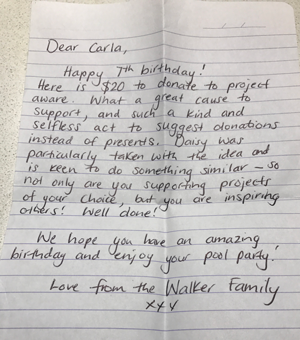 Dear Carla,
Happy 7th birthday!
Here is $20 to donate to project
aware. What a great cause to
support, and such a kind and
selfless act to suggest donations
instead of presents. Daisy was
particularly taken with the idea and
is keen to do something similar - so
not only are you supporting projects
of your choice, but you are inspiring
others! Well done!
We hope you have an amazing
birthday and enjoy your pool party!
Love from the Walker Family
xxx